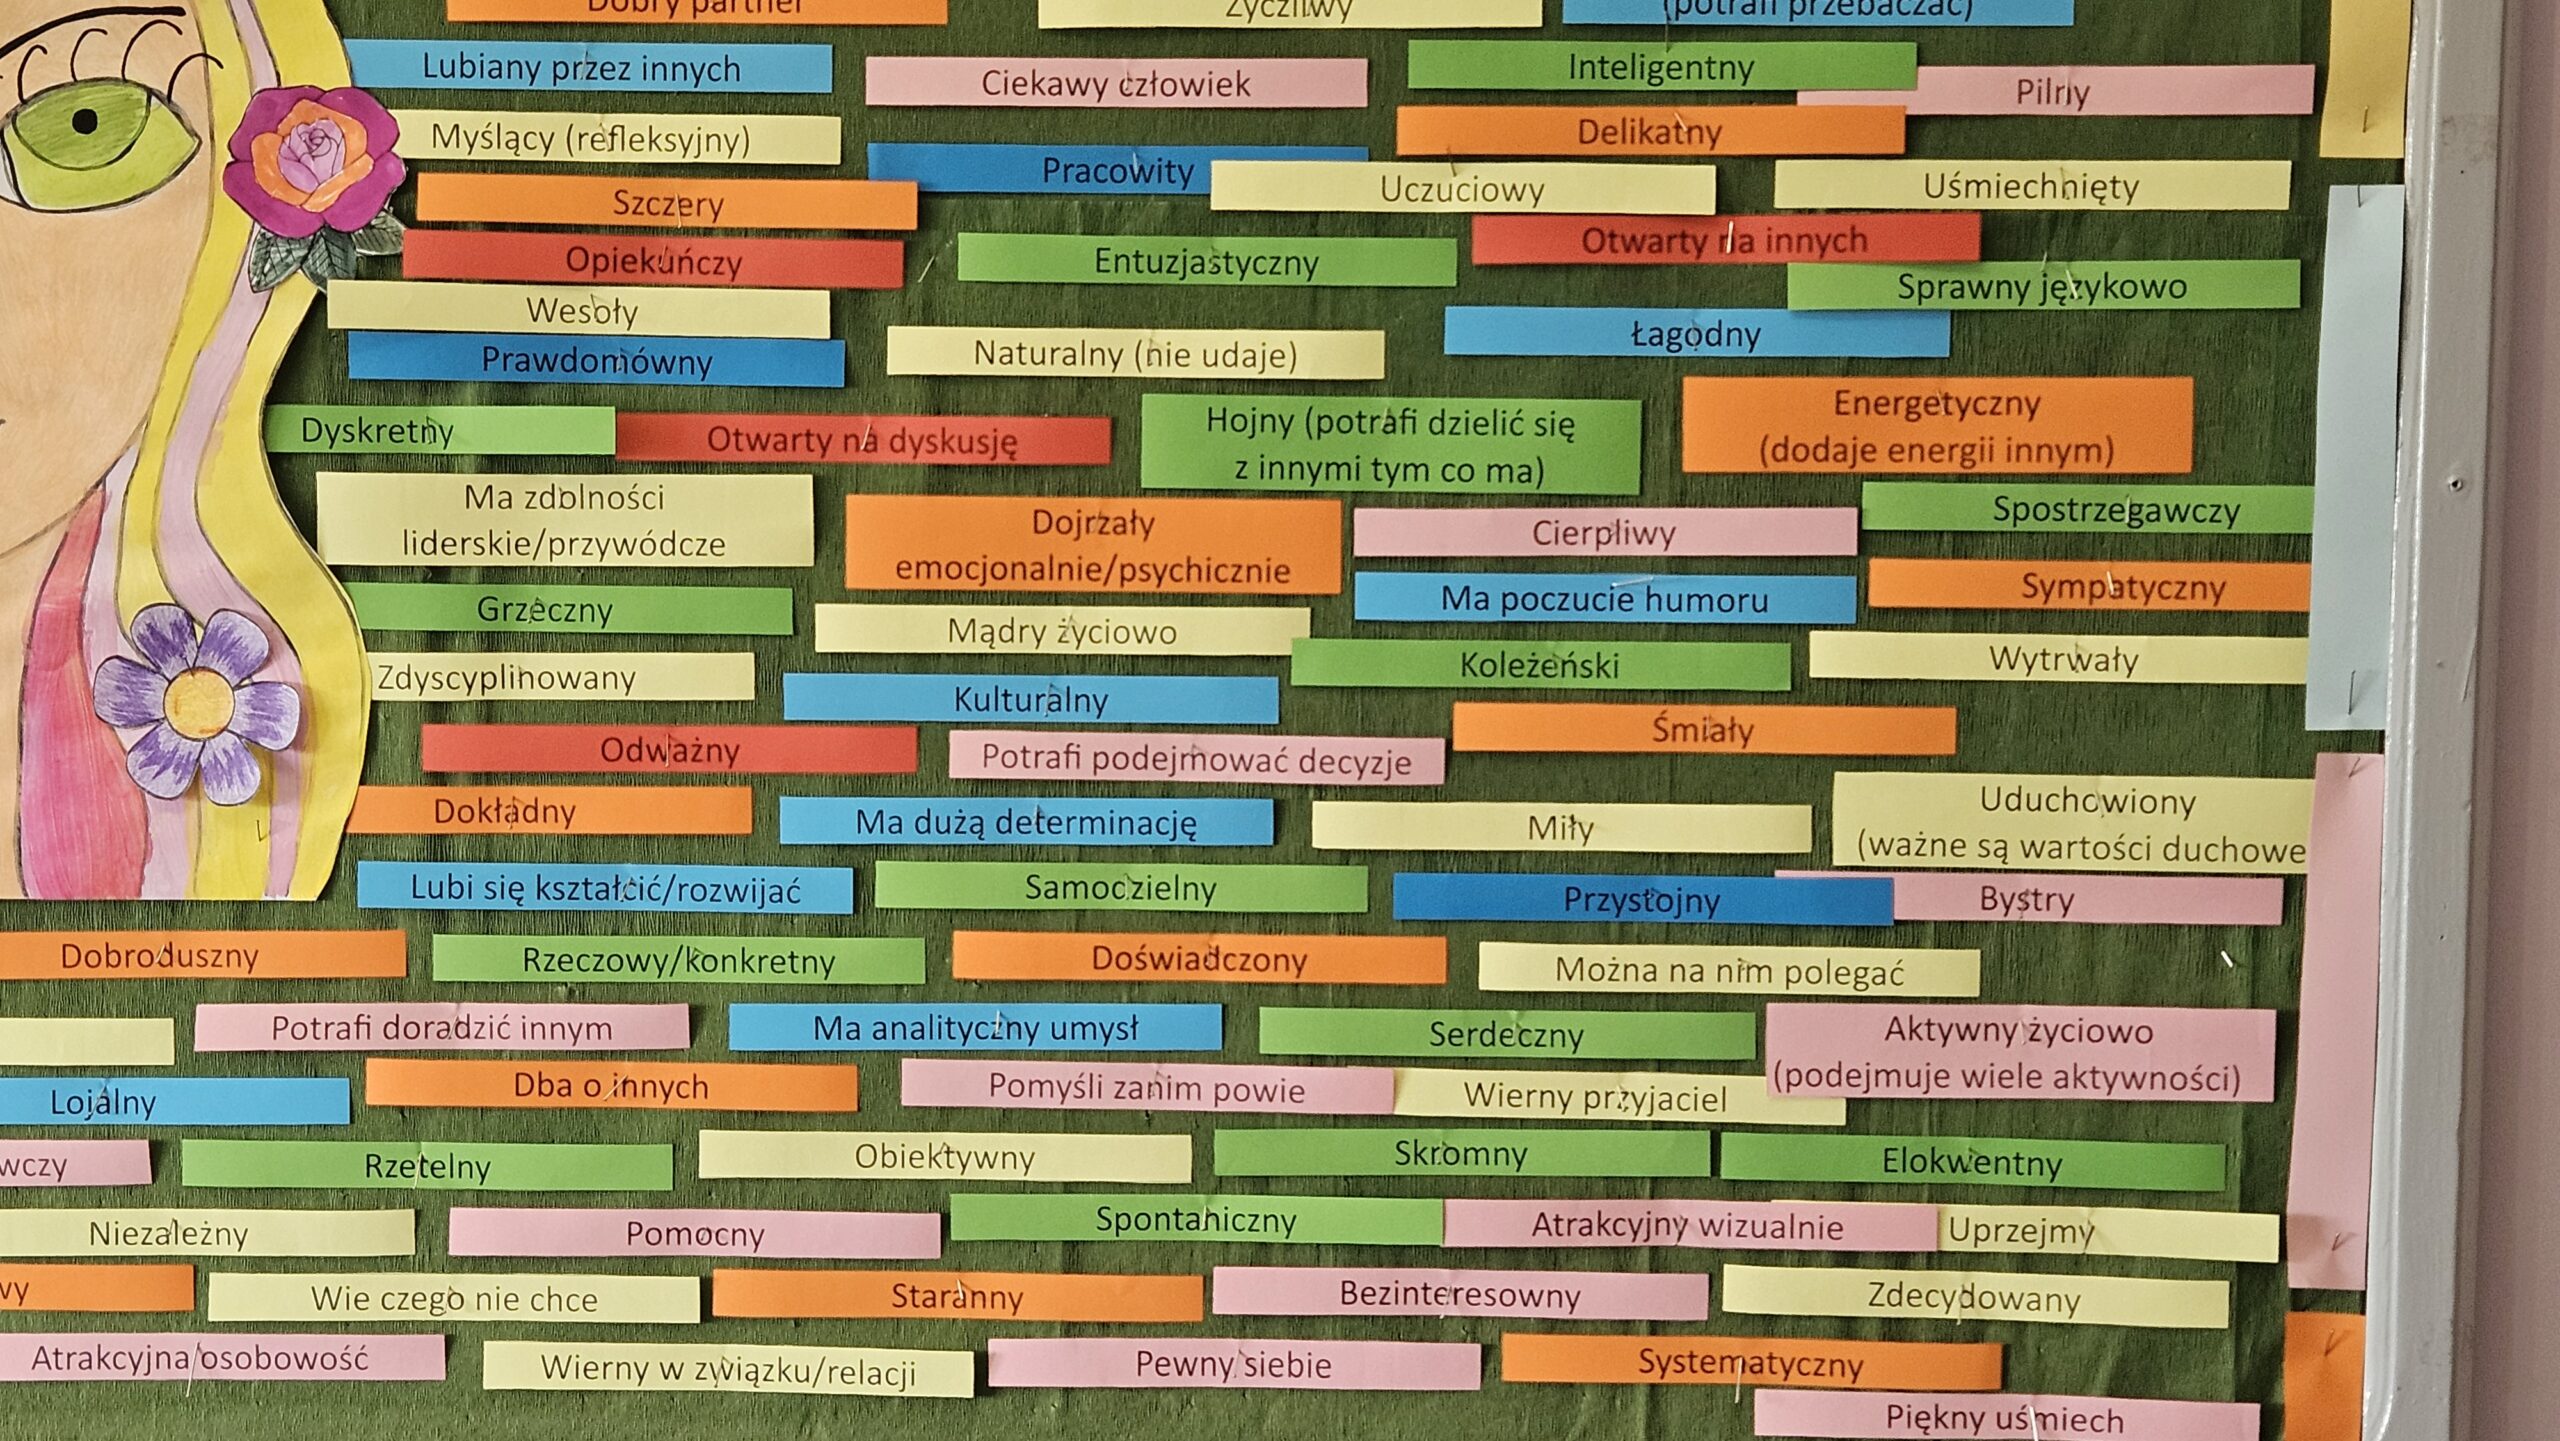 Dobry partner
Życzliwy
(potrafi przebaczać)
Lubiany przez innych
Ciekawy człowiek
Inteligentny
Pilny
Myślący (refleksyjny)
Delikatny
Pracowity
Uczuciowy
Uśmiechnięty
Szczery
Otwarty na innych
Opiekuńczy
Entuzjastyczny
Sprawny językowo
Wesoły
Łagodny
Prawdomówny
Naturalny (nie udaje)
Dyskretny
Otwarty na dyskusję
Hojny (potrafi dzielić się
z innymi tym co ma)
Energetyczny
(dodaje energii innym)
Ma zdolności
liderskie/przywódcze
Dojrzały
emocjonalnie/psychicznie
Cierpliwy
Spostrzegawczy
Ma poczucie humoru
Sympatyczny
Grzeczny
Mądry życiowo
Koleżeński
Wytrwały
Zdyscyplinowany
Kulturalny
Śmiały
Odważny
Potrafi podejmować decyzje
Dokładny
Ma dużą determinację
Miły
Uduchowiony
(ważne są wartości duchowe
Lubi się kształcić/rozwijać
Samodzielny
Przystojny
Bystry
Dobroduszny
Rzeczowy/konkretny
Doświadczony
Można na nim polegać
Potrafi doradzić innym
Ma analityczny umysł
Serdeczny
Aktywny życiowo
(podejmuje wiele aktywności)
Lojalny
Dba o innych
Pomyśli zanim powie
Wierny przyjaciel
wczy
Rzetelny
Obiektywny
Skromny
Elokwentny
Niezależny
Pomocny
Spontaniczny
Atrakcyjny wizualnie
Uprzejmy
wy
Wie czego nie chce
Staranny
Bezinteresowny
Zdecydowany
Atrakcyjna osobowość
Wierny w związku/relacji
Pewny siebie
Systematyczny
Piękny uśmiech